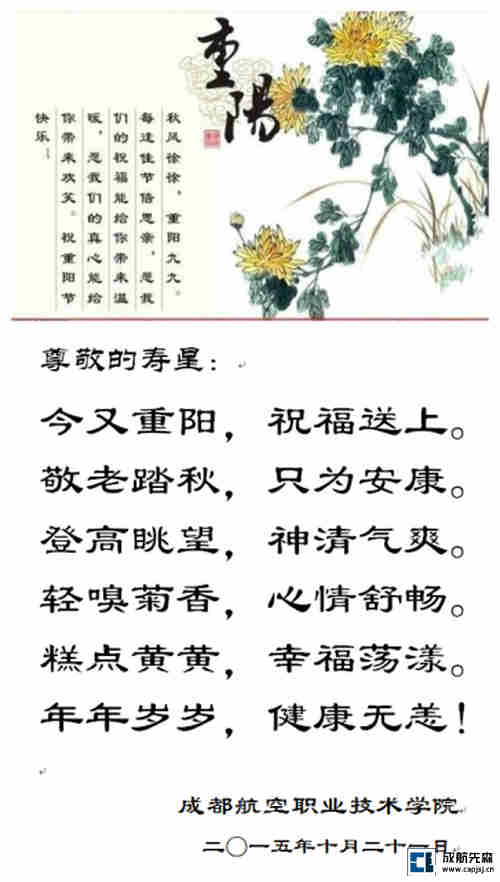 重陽
秋风徐徐，重阳九九。
每逢佳节倍思亲，愿我
们的祝福能给你带来温
暖，愿我们的真心能给
你带来欢笑。祝重阳节
快乐！
尊敬的寿星：
今又重阳，祝福送上。
敬老踏秋，只为安康。
登高眺望，神清气爽。
轻嗅菊香，心情舒畅。
糕点黄黄，幸福荡漾。
年年岁岁，健康无恙！
成都航空职业技术学院
二〇一五年十月二十一日
成航先森
www.capjsj.cn